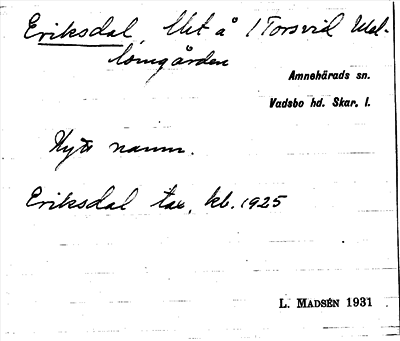 Eriksdal, lht å 1 Torsvid Mel-
lomgården
Amnehärads sn.
Vadsbo hd. Skar. l.
Nytt namn.
Eriksdal tax, kb. 1925
L. MADSÉN 1931